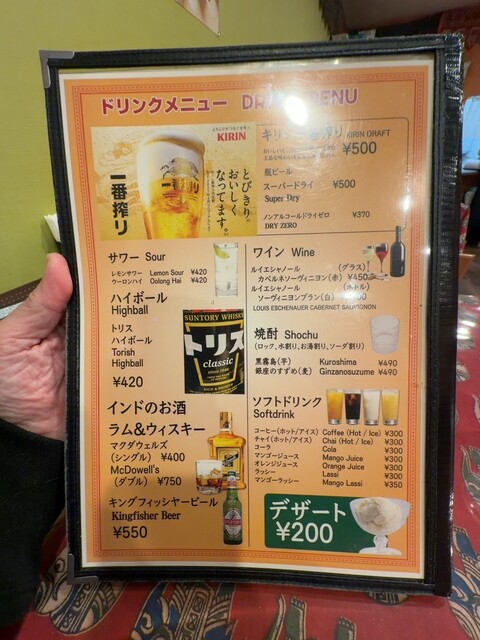 ドリンクメニュー DR ENU
KIRIN
とびきり。
おいしく
なってます。
一番搾り
一番搾り
キリン 搾り KIRIN DRAFT
¥500
瓶ビール
スーパードライ ¥500
Super Dry
ノンアルコールドライゼロ ¥370
DRY ZERO
サワー Sour
レモンサワー Lemon Sour ¥420
ウーロンハイ Oolong Hai ¥420
ハイボール
Highball
トリス
ハイボール
Torish
Highball
¥420
SUNTORY WHISKY
トリス
classic
ワイン Wine
ルイエシャノール (グラス)
カベルネソーヴィニヨン(赤) ¥450
ルイエシャノール (ボトル)
ソーヴィニヨンブラン(白)
LOUIS ESCHENAUER CABERNET SAUVIGNON
焼酎 Shochu
(ロック、水割り、お湯割り、ソーダ割り)
黒霧島(芋) Kuroshima ¥490
銀座のすずめ(麦) Ginzanosuzume ¥490
インドのお酒
ラム&ウィスキー
マクダウェルズ
(シングル) ¥400
McDowell's
(ダブル) ¥750
キングフィッシャービール
Kingfisher Beer
¥550
ソフトドリンク
Softdrink
コーヒー(ホット/アイス) Coffee (Hot / Ice) ¥300
チャイ(ホット/アイス) Chai (Hot / Ice) ¥300
コーラ Cola ¥300
マンゴージュース Mango Juice ¥300
オレンジジュース Orange Juice ¥300
ラッシー Lassi ¥300
マンゴーラッシー Mango Lassi ¥350
デザート
¥200